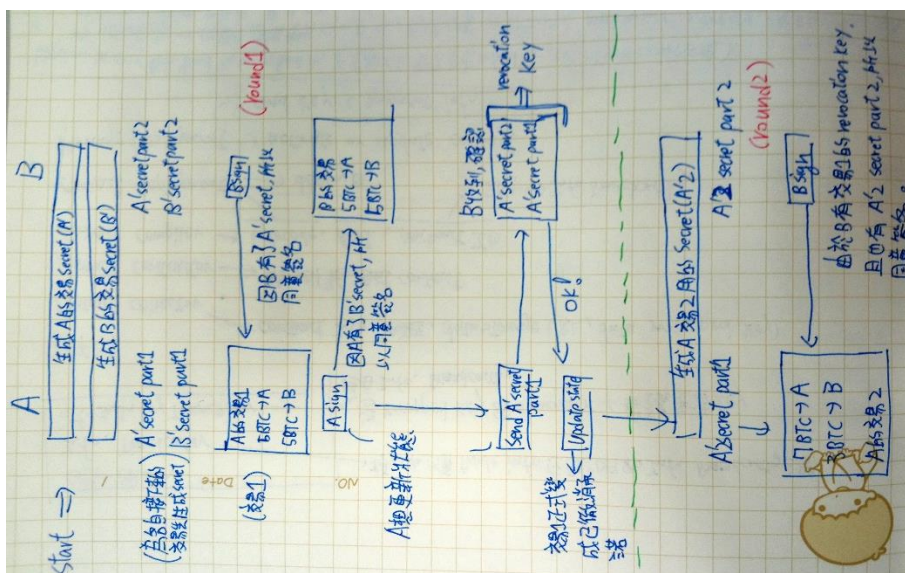 A
B
Start ⇒
生成A的交易secret(A')
生成B的交易secret(B')
(為各自接下來的
交易先生成secret)
A'secret part1
B'secret part1
A'secret part2
B'secret part2
(round1)
(交易1)
A的交易1
5BTC→A
5BTC→B
B sign
因B有了A'secret, 所以
同意簽名
A sign
因A有了B'secret, 所
以同意簽名
B的交易
5BTC→A
5BTC→B
A想更新狀態
Send A'secret
part1
B收到, 確認
A'secret part2
A'secret part1
revocation
⇒ key
OK!
Update state
交易1正式變
成已撤消承
諾
生成A交易2用的Secret(A'2)
A'2secret part1
A'2 secret part2
(round2)
B sign
由於B有交易1的revocation key,
且也有A'2 secret part2, 所以
同意簽名。
7BTC→A
3BTC→B
A的交易2
Date
NO.